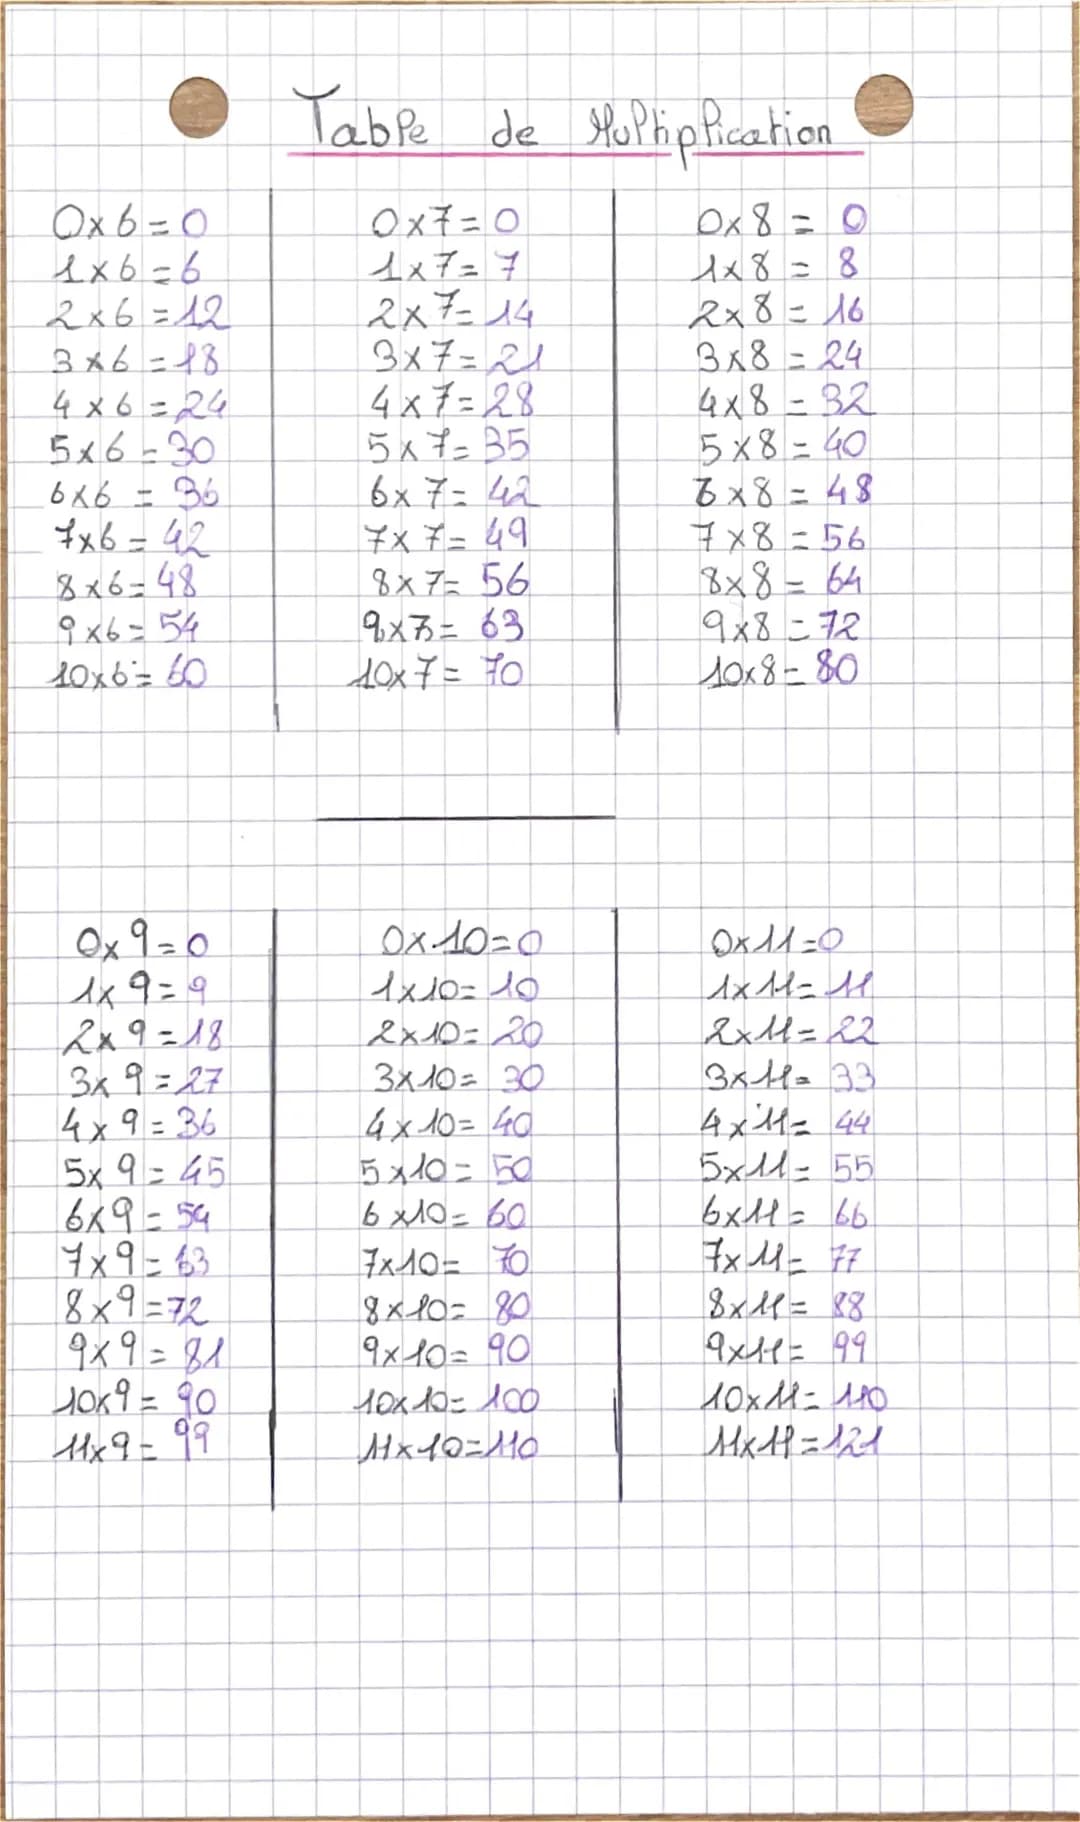 Table de Multiplication
0x6=0
1x6=6
2x6=12
3x6=18
4x6=24
5x6=30
6x6=36
7x6=42
8x6=48
9x6=54
10x6=60
0x7=0
1x7=7
2x7=14
3x7=21
4x7=28
5x7=35
6x7=42
7x7=49
8x7=56
9x7=63
10x7=70
0x8=0
1x8=8
2x8=16
3x8=24
4x8=32
5x8=40
6x8=48
7x8=56
8x8=64
9x8=72
10x8=80
0x9=0
1x9=9
2x9=18
3x9=27
4x9=36
5x9=45
6x9=54
7x9=63
8x9=72
9x9=81
10x9=90
11x9=99
0x10=0
1x10=10
2x10=20
3x10=30
4x10=40
5x10=50
6x10=60
7x10=70
8x10=80
9x10=90
10x10=100
11x10=110
0x11=0
1x11=11
2x11=22
3x11=33
4x11=44
5x11=55
6x11=66
7x11=77
8x11=88
9x11=99
10x11=110
11x11=121